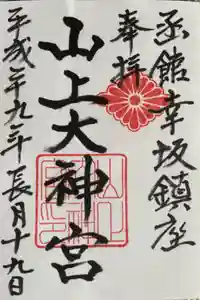 函館幸坂鎮座
奉拝
山上大神宮
平成廿九年長月十九日